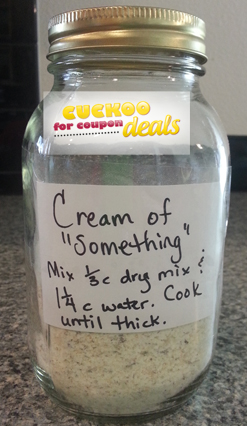 CUCKOO
for coupon deals
Cream of
"Something"
Mix ⅓ c dry mix &
1¼ c water. Cook
until thick.